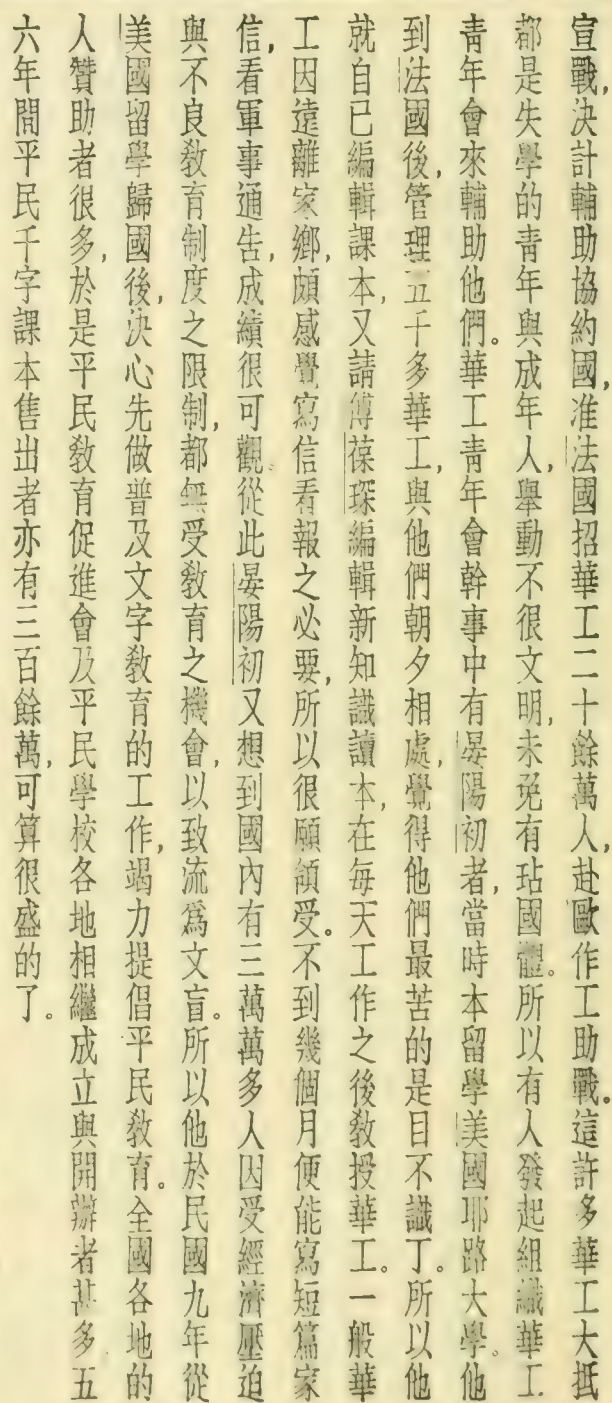 宣戰,決計輔助協約國,准法國招華工二十餘萬人,赴歐作工助戰。這許多華工大抵
都是失學的青年與成年人,舉動不很文明,未免有玷國體。所以有人發起組織華工
青年會來輔助他們。華工青年會幹事中有晏陽初者,當時本留學美國耶路大學。他
到法國後,管理五千多華工,與他們朝夕相處,覺得他們最苦的是目不識丁。所以他
就自己編輯課本,又請傅葆琛編輯新知識讀本,在每天工作之後教授華工。一般華
工因遠離家鄉,頗感覺寫信看報之必要,所以很願領受。不到幾個月便能寫短篇家
信,看軍事通告,成績很可觀。從此晏陽初又想到國內有三萬萬多人因受經濟壓迫
與不良教育制度之限制,都無受教育之機會,以致流為文盲。所以他於民國九年從
美國留學歸國後,決心先做普及文字教育的工作,竭力提倡平民教育。全國各地的
人贊助者很多,於是平民教育促進會及平民學校各地相繼成立與開辦者甚多五
六年間平民千字課本售出者亦有三百餘萬,可算很盛的了。